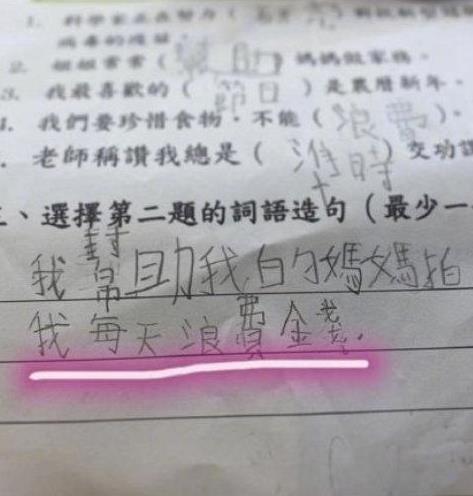 1. 科學家正在努力（研究）對抗新型冠
病毒的疫苗。
2. 姐姐常常（幫助）媽媽做家務。
3. 我最喜歡的（節日）是農曆新年。
4. 我們要珍惜食物，不能（浪費）。
. 老師稱讚我總是（準時）交功課
三、選擇第二題的詞語造句（最少一
我幫助我的媽媽拍
我每天浪費金錢.